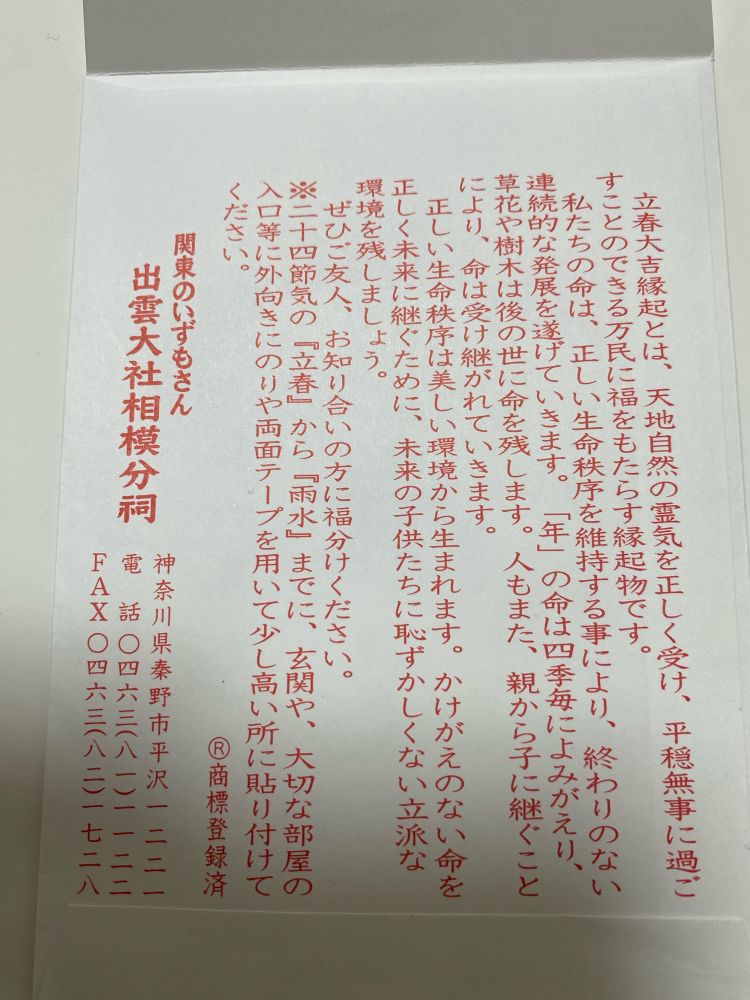 立春大吉縁起とは、天地自然の霊気を正しく受け、平穏無事に過ご
すことのできる万民に福をもたらす縁起物です。
私たちの命は、正しい生命秩序を維持する事により、終わりのない
連続的な発展を遂げていきます。「年」の命は四季毎によみがえり、
草花や樹木は後の世に命を残します。人もまた、親から子に継ぐこと
により、命は受け継がれていきます。
正しい生命秩序は美しい環境から生まれます。かけがえのない命を
正しく未来に継ぐために、未来の子供たちに恥ずかしくない立派な
環境を残しましょう。
ぜひご友人、お知り合いの方に福分けください。
※二十四節気の『立春』から『雨水』までに、玄関や、大切な部屋の
入口等に外向きにのりや両面テープを用いて少し高い所に貼り付けて
ください。
Ⓡ商標登録済
関東のいずもさん
出雲大社相模分祠
神奈川県秦野市平沢一二二一
電話〇四六三(八一)一一二二
FAX〇四六三(八二)一七二八